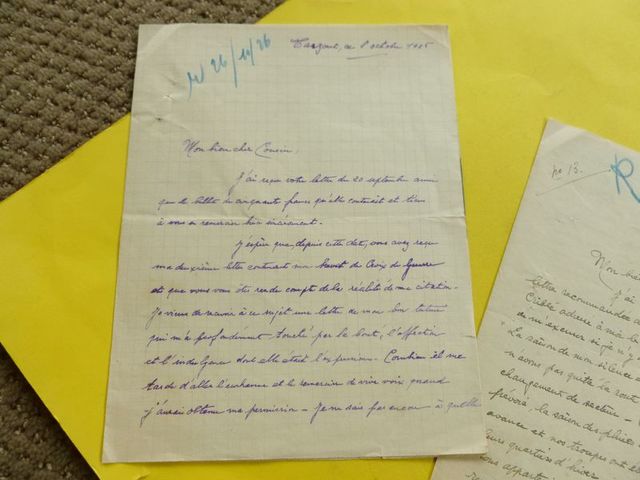 r/ 26/10/26
ce 8 octobre 19
Mon bien cher Cousin,
J'ai reçu votre lettre du 20 septembre ainsi
que le billet de cinquante francs qu'elle contenait et tiens
à vous en remercier bien sincèrement.
J'espère que depuis cette date, vous avez reçu
ma deuxième lettre contenant mon brevet de Croix de Guerre
et que vous vous êtes rendu compte de la réalité de ma citation.
Je viens de recevoir à ce sujet une lettre de mon bon tuteur
qui m'a profondément touché par la bonté, l'affection
et l'indulgence dont elle était l'expression. Combien il me
tarde d'aller l'embrasser et le remercier de vive voix quand
j'aurai obtenu ma permission - Je ne sais pas encore à quelle
no 13.
R
Mon bien
J'ai
lettre recommandée
adressée à ma
de m'excuser si je n'
"La saison de mon silence
n'avons pas quitté la route
changement de secteur -
prévoir la saison des pluies
avancer et nos troupes ont
leurs quartiers d'hiver